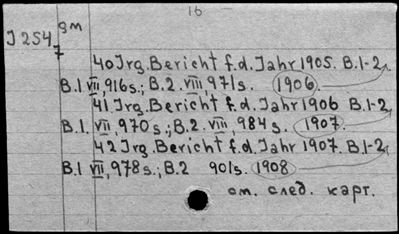 16
J 254/7 9m
40 Jrg. Bericht f. d. Jahr 1905. B.1-2
B.1 VII, 916 s.; B.2. VIII, 971 s. 1906
41 Jrg. Bericht f. d. Jahr 1906 B.1-2
B.1. VII, 970 s.; B.2. VIII, 984 s. 1907.
42 Jrg. Bericht f. d. Jahr 1907. B.1-2
B.1 VII, 978 s.; B.2 901 s. 1908
см. след. карт.